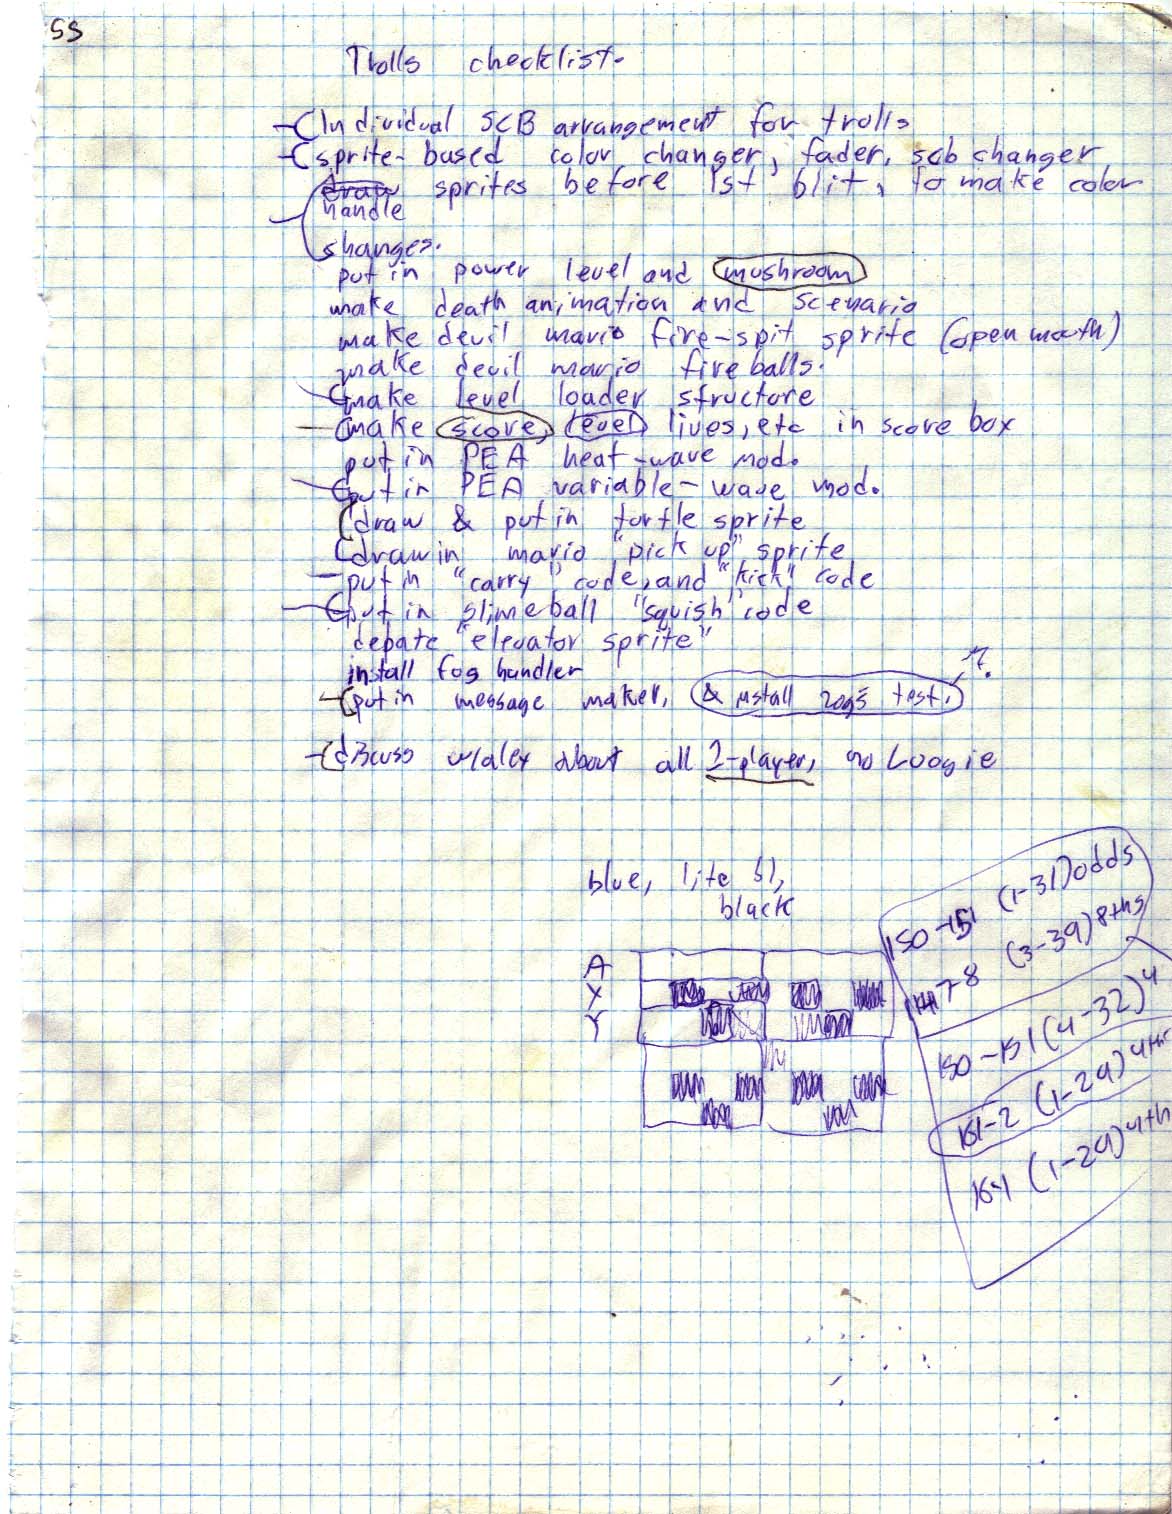 55
Trolls checklist.
Individual SCB arrangement for trolls
sprite-based color changer, fader, scb changer
draw sprites before 1st blit, to make color
handle
changes.
put in power level and mushroom
make death animation and scenario
make devil mario fire-spit sprite (open mouth)
make devil mario fireballs.
make level loader structure
make score, level, lives, etc in score box
put in PEA heat-wave mod.
put in PEA variable-wave mod.
draw & put in turtle sprite
draw in mario "pick up" sprite
put in "carry" code, and "kick" code
put in slimeball "squish" code
debate "elevator sprite"
install fog handler
put in message maker, & install test.
discuss w/alex about all 2-player, no Loogie
blue, lite bl,
black
A
X
Y
150-151 (1-31) odds
78 (3-39) 8ths
150-151 (4-32) 4
151-2 (1-29) 4ths
164 (1-29) 4th